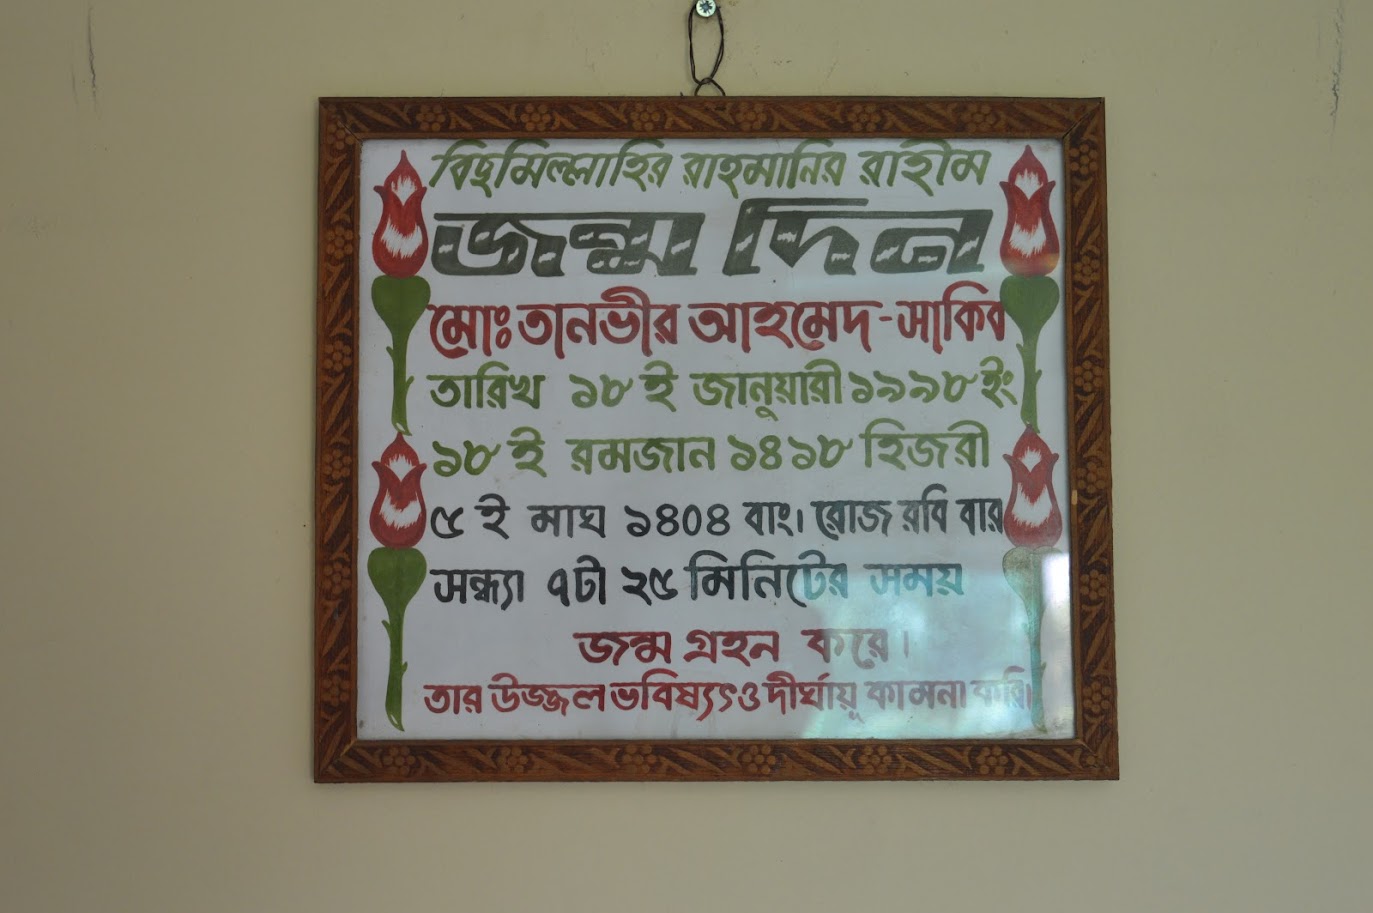 বিছমিল্লাহির রাহমানির রাহীম
জন্ম দিন
মোঃ তানভীর আহমেদ-সাকিব
তারিখ ১৮ ই জানুয়ারী ১৯৯৮ ইং
১৮ ই রমজান ১৪১৮ হিজরী
৫ ই মাঘ ১৪০৪ বাং। রোজ রবি বার
সন্ধ্যা ৭টা ২৫ মিনিটের সময়
জন্ম গ্রহন করে।
তার উজ্জল ভবিষ্যৎ ও দীর্ঘায়ু কামনা করি।